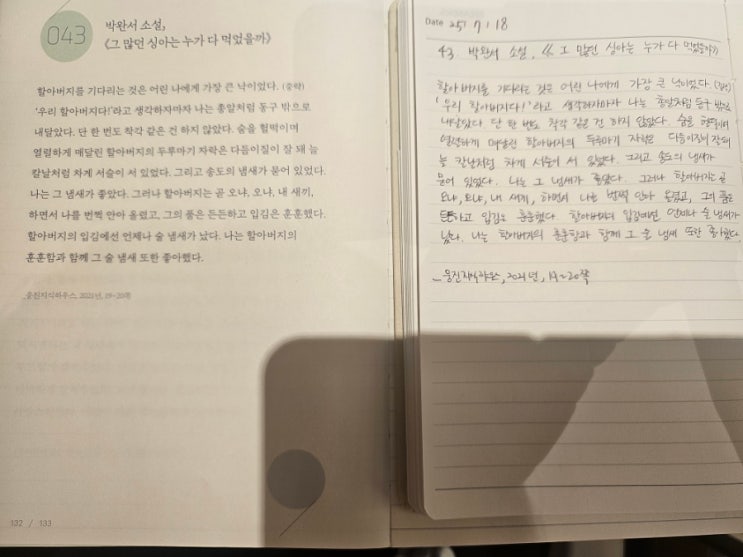 043
박완서 소설,
《그 많던 싱아는 누가 다 먹었을까》
할아버지를 기다리는 것은 어린 나에게 가장 큰 낙이었다. (중략)
'우리 할아버지다!'라고 생각하자마자 나는 총알처럼 동구 밖으로
내달았다. 단 한 번도 착각 같은 건 하지 않았다. 숨을 헐떡이며
열렬하게 매달린 할아버지의 두루마기 자락은 다듬이질이 잘 돼 늘
칼날처럼 차게 서슬이 서 있었다. 그리고 송도의 냄새가 묻어 있었다.
나는 그 냄새가 좋았다. 그러나 할아버지는 곧 오냐, 오냐, 내 새끼,
하면서 나를 번쩍 안아 올렸고, 그의 품은 든든하고 입김은 훈훈했다.
할아버지의 입김에선 언제나 술 냄새가 났다. 나는 할아버지의
훈훈함과 함께 그 술 냄새 또한 좋아했다.
_웅진지식하우스, 2021년, 19~20쪽
132 / 133
Date 25 / 7 / 18
43. 박완서 소설, 《그 많던 싱아는 누가 다 먹었을까》
할아버지를 기다리는 것은 어린 나에게 가장 큰 낙이었다. (중략)
'우리 할아버지다!'라고 생각하자마자 나는 총알처럼 동구 밖으로
내달았다. 단 한 번도 착각 같은 건 하지 않았다. 숨을 헐떡이며
열렬하게 매달린 할아버지의 두루마기 자락은 다듬이질이 잘 돼
늘 칼날처럼 차게 서슬이 서 있었다. 그리고 송도의 냄새가
묻어 있었다. 나는 그 냄새가 좋았다. 그러나 할아버지는 곧
오냐, 오냐, 내 새끼, 하면서 나를 번쩍 안아 올렸고, 그의 품은
든든하고 입김은 훈훈했다. 할아버지의 입김에선 언제나 술 냄새가
났다. 나는 할아버지의 훈훈함과 함께 그 술 냄새 또한 좋아했다.
_웅진지식하우스, 2021년, 19~20쪽